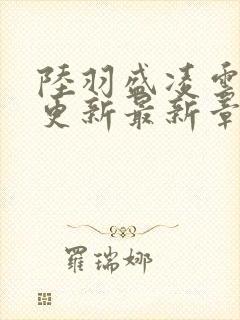 陸羽盛凌雲
更新最新章
羅瑞娜